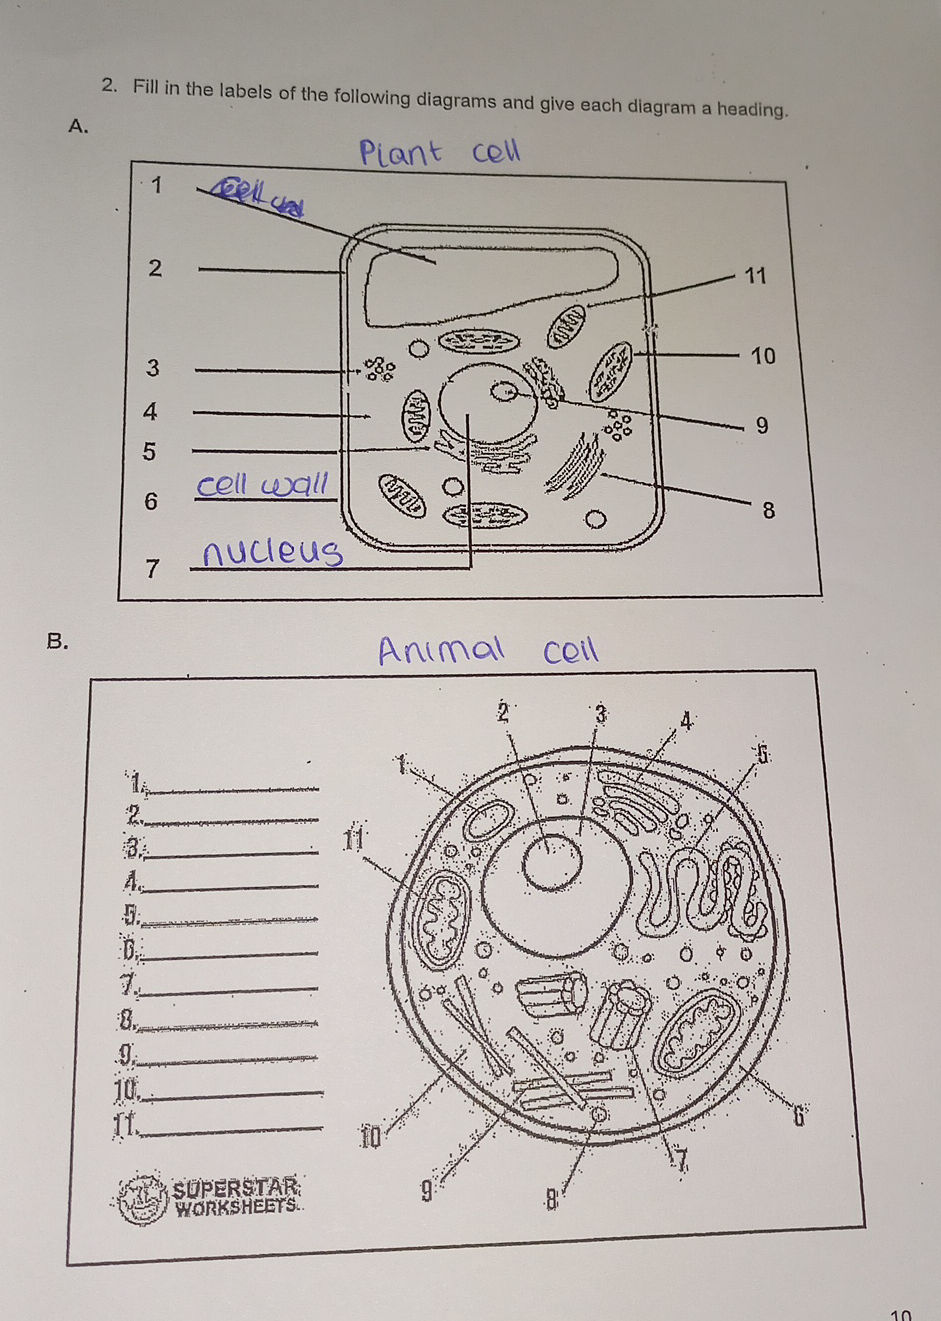 2. Fill in the labels of the following diagrams and give each diagram a heading.
A.
Plant cell
1
2
11
3
10
4
9
5
6 cell wall
8
7 nucleus
B.
Animal cell
2 3 4
1 5
1.
2.
3. 11
4.
5.
6.
7.
8.
9.
10.
11. 10 6
7
SUPERSTAR
WORKSHEETS
9 8
10